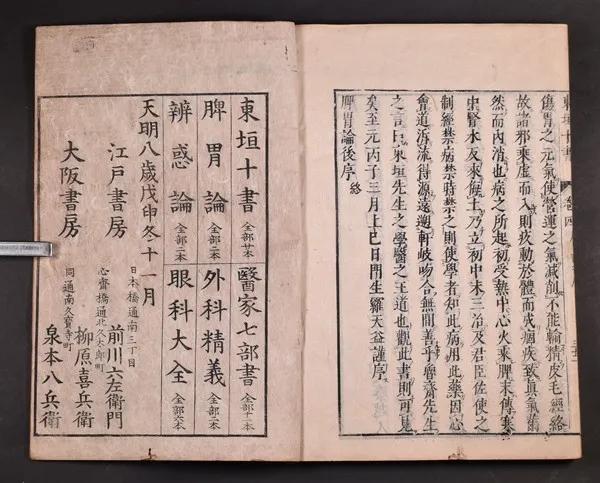 東垣十書　卷四
傷胃之元氣使營運之氣減削不能輸精皮毛經絡
故諸邪乘虛而入則痰動於體而成痼疾致真氣
然而內消也病之所起初受熱中心火乘脾末傳寒
中腎水反來侮土乃立初中末三治及君臣佐使之
制經禁病禁時禁之則使學者知此病用此藥因心
會通泝流得源遠遡軒岐吻合無間善乎魯齋先生
之言曰東垣先生之學醫之王道也觀此書則可見
矣至元丙子三月上巳日門生羅天益謹序
脾胃論後序 終
東垣十書 全部廿本 醫家七部書 全部十一本
脾胃論 全部二本 外科精義 全部二本
辨惑論 全部二本 眼科大全 全部六本
天明八歳戊申冬十一月
江戶書房 日本橋通南三丁目 前川六左衛門
大阪書房 心齋橋通北久太郎町 柳原喜兵衛
同通南久寶寺町 泉本八兵衛